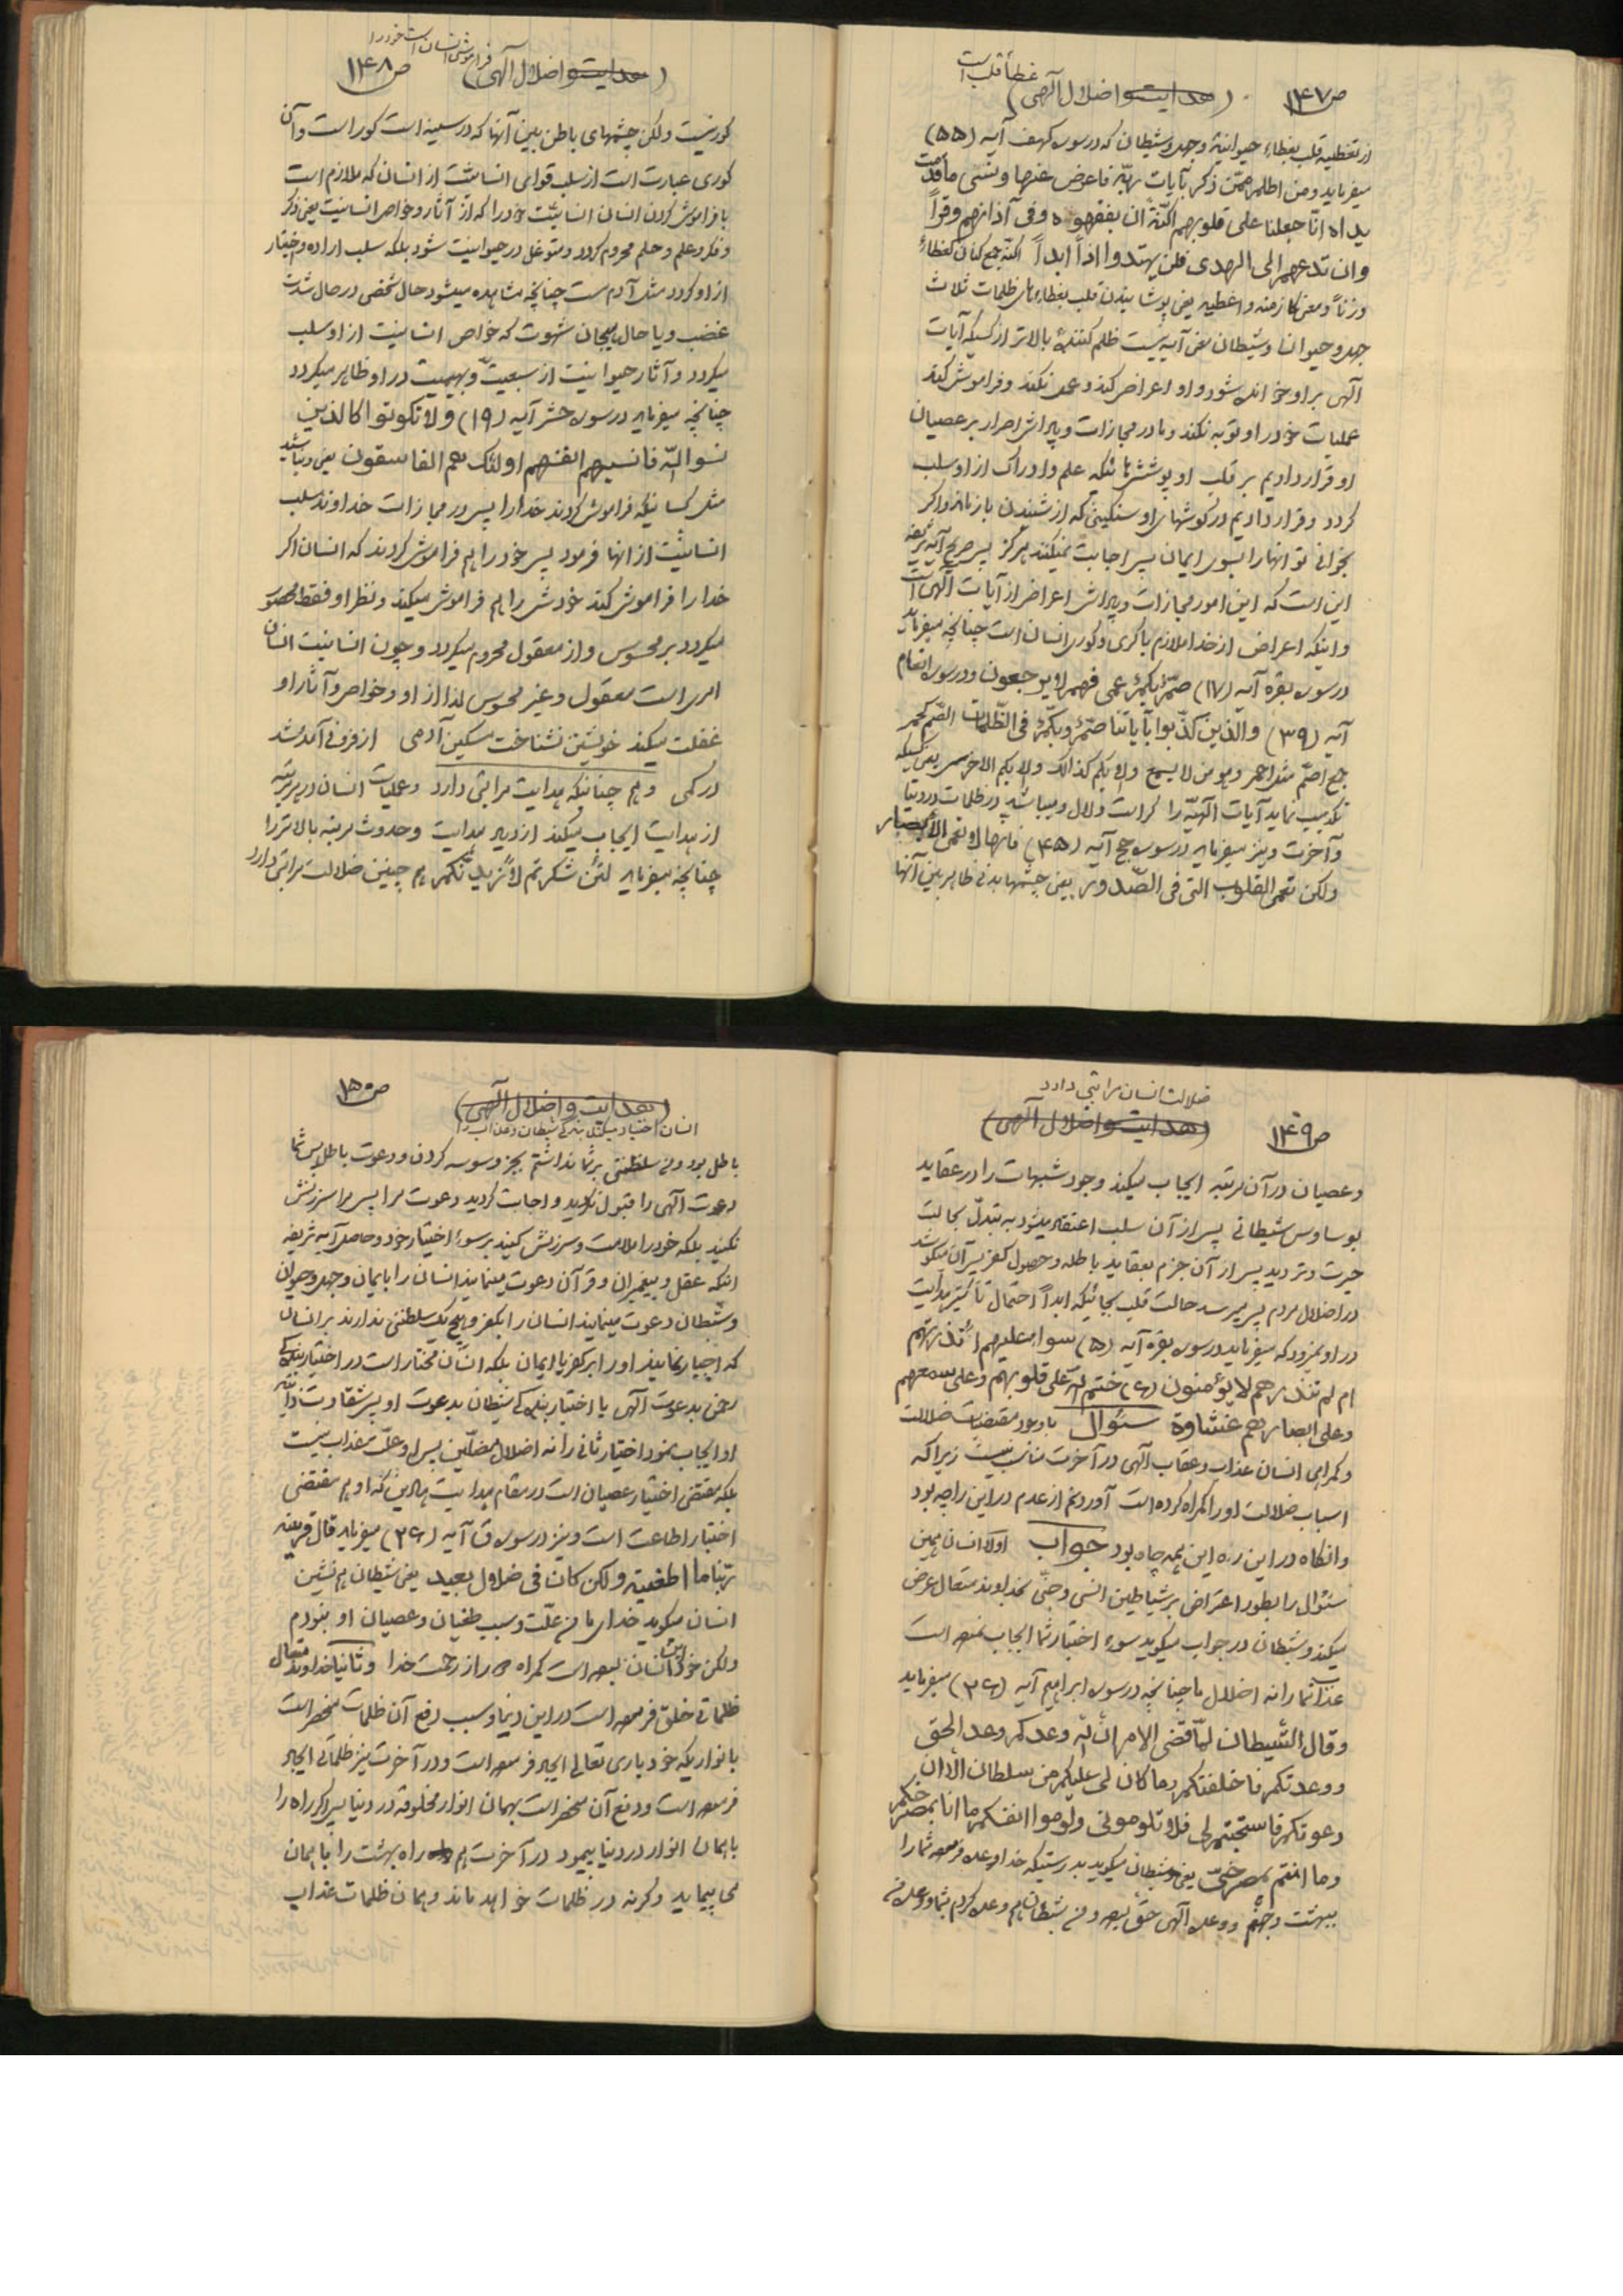 غطاء قلب است
ص۱۴۷ (هدایت و اضلال آلهی)
از تغطیه قلب بغطاء حیوانیة وجهل وشیطان که در سوره کهف آیه (۵۵)
میفرماید ومن اظلم ممّن ذکر بآیات ربّه فاعرض عنها ونسی ماقدّمت
یداه انّا جعلنا علی قلوبهم اکنّة ان یفقهوه وفی آذانهم وقراً
وان تدعهم الی الهدی فلن یهتدوا اذاً ابداً اکنّه جمع کنان کغطاء
وزناً ومعنی کازمنه واغطیه یعنی پوشانیدن قلب بغطاء های ظلمات ثلاث
جهل وحیوان وشیطان معنی آیه نیست ظلم کننده بالاتر از کسیکه آیات
آلهی بر او خوانده شود و او اعراض کند وعمل نکند وفراموش کند
عملیات خود را و توبه نکند ما در مجازات وپاداش اصرار بر عصیان
او قرار دادیم بر قلب او پوشش هائیکه علم وادراک از او سلب
گردد وقرار دادیم در گوشهای او سنگینی که از شنیدن باز ماند واگر
بخوانی تو آنها را بسوی ایمان پس اجابت نمیکنند هرگز پس صریح آیه شریفه
این است که این امور مجازات وپاداش اعراض از آیات آلهی است
واینکه اعراض از خدا ملازم با کری وکوری انسان است چنانچه میفرماید
در سوره بقره آیه (۱۷) صمّ بکم عمی فهم لا یرجعون ودر سوره انعام
آیه (۳۹) والّذین کذّبوا بآیاتنا صمّ وبکم فی الظّلمات الصّم کحمر
جمع اصمّ مثل احمر وهو من لا یسمع ولا بکم کذالک والا بکم الاخرس یعنی کسیکه
تکذیب نماید آیات آلهیّه را کر است ولال ومیباشد در ظلمات در دنیا
وآخرت ونیز میفرماید در سوره حج آیه (۴۵) فانها لا تعمی الأبصار
ولکن تعمی القلوب التی فی الصّدور یعنی چشمهای بدنی ظاهر بین آنها
فراموشی انسان است خود را
(هدایت و اضلال آلهی) ص۱۴۸
کور نیست ولکن چشمهای باطن بین آنها که در سینه است کور است وآن
کوری عبارت است از سلب قوای انسانیّت از انسان که ملازم است
با فراموش کردن انسان انسانیّت خود را که از آثار وخواص انسانیت یعنی ذکر
وفکر وعلم وحلم محروم گردد ومتوغل در حیوانیت شود بلکه سلب اراده واختیار
از او گردد مثل آدم مست چنانچه مشاهده میشود حال شخص در حال شدت
غضب ویا حال هیجان شهوت که خواص انسانیت از او سلب
میگردد وآثار حیوانیت از سبعیّت وبهیمیت در او ظاهر میگردد
چنانچه میفرماید در سوره حشر آیه (۱۹) ولا تکونوا کالذین
نسوا اللّه فانسیهم انفسهم اولئک هم الفاسقون یعنی نباشید
مثل کسانیکه فراموش کردند خدا را پس در مجازات خداوند سلب
انسانیّت از آنها فرمود پس خود را هم فراموش کردند که انسان اگر
خدا را فراموش کند خودش را هم فراموش میکند ونظر او فقط محصور
میگردد بر محسوس واز معقول محروم میگردد وچون انسانیت انسان
امری است معقول وغیر محسوس لذا از او وخواص وآثار او
غفلت میکند خویشتن نشناخت مسکین آدمی از فزونی آمد وشد
در کمی وهم چنانکه هدایت مراتبی دارد وعملیات انسان در هر مرتبه
از هدایت ایجاب میکند ازدیاد هدایت وحدوث مرتبه بالاتر را
چنانچه میفرماید لئن شکرتم لأزیدنّکم هم چنین ضلالت مراتبی دارد
ضلالت انسان مراتبی دارد
ص۱۴۹ (هدایت و اضلال آلهی)
وعصیان در آن مرتبه ایجاب میکند وجود شبهات را در عقاید
بوساوس شیطانی پس از آن سلب اعتقاد میشود به تبدّل بحالت
حیرت وتردید پس از آن جزم بعقاید باطله وحصول کفر پس از آن میکوشد
در اضلال مردم پس میرسد حالت قلب بجائیکه ابداً احتمال تأثیر هدایت
در او نمیرود که میفرماید در سوره بقره آیه (۵) سواء علیهم ءانذرتهم
ام لم تنذرهم لا یؤمنون (۶) ختم اللّه علی قلوبهم وعلی سمعهم
وعلی ابصارهم غشاوة سئوال با وجود مقتضیات ضلالت
وگمراهی انسان عذاب وعقاب آلهی در آخرت مناسب نیست زیرا که
اسباب ضلالت او را گمراه کرده است آوردنم از عدم در این راه چه بود
وانگاه در این ره این همه چاه بود جواب اولا انسان همین
سئوال را بطور اعتراض بر شیاطین انسی وجنّی بخداوند متعال عرض
میکند وشیطان در جواب میگوید سوء اختیار شما ایجاب نموده است
عذاب شما را نه اضلال ما چنانچه در سوره ابراهیم آیه (۲۶) میفرماید
وقال الشّیطان لمّا قضی الامر انّ اللّه وعدکم وعد الحق
ووعدتکم فاخلفتکم وما کان لی علیکم من سلطان الّا ان
دعوتکم فاستجبتم لی فلا تلومونی ولوموا انفسکم ما انا بمصرخکم
وما انتم بمصرخیّ یعنی شیطان میگوید بدرستیکه خدا وعده فرموده شما را
ببهشت وجهنم ووعده آلهی حق بوده ومن شیطان هم وعده کردم بشما ووعده من
(هدایت و اضلال آلهی) ص۱۵۰
انسان اختیار میکند بندگی شیطان وعذاب را
باطل بود ومن سلطنتی بر شما نداشتم بجز وسوسه کردن ودعوت باطل پس شما
دعوت آلهی را قبول نکردید واجابت کردید دعوت مرا پس مرا سرزنش
نکنید بلکه خود را ملامت وسرزنش کنید بر سوء اختیار خود وحاصل آیه شریفه
اینکه عقل وپیغمبران وقرآن دعوت مینمایند انسان را بایمان وجهل وحیوان
وشیطان دعوت مینمایند انسان را بکفر وهیچ یک سلطنتی ندارند بر انسان
که اجبار نمایند او را بر کفر یا ایمان بلکه انسان مختار است در اختیار بندگی
رحمن بدعوت آلهی یا اختیار بندگی شیطان بدعوت او پس شقاوت ذاتیّه
او ایجاب نمود اختیار ثانی را نه اضلال مضلّین پس او علّت عذاب نیست
بلکه مقتضی اختیار عصیان است در مقام هدایت هادین که او هم مقتضی
اختیار اطاعت است ونیز در سوره ق آیه (۲۶) میفرماید قال قرینه
ربّنا ما اطغیته ولکن کان فی ضلال بعید یعنی شیطان هم نشین
انسان میگوید خدای ما من علّت وسبب طغیان وعصیان او نبودم
ولکن خود این انسان بوده است گمراه ودور از رحمت خدا وثانیا خداوند متعال
ظلماتی خلق فرموده است در این دنیا وسبب رفع آن ظلمات منحصر است
بانواریکه خود باری تعالی ایجاد فرموده است ودر آخرت نیز ظلماتی ایجاد
فرموده است ودفع آن منحصر است بهمان انوار مخلوقه در دنیا پس اگر راه را
با همان انوار در دنیا پیمود در آخرت هم راه بهشت را با همان
می پیماید وگرنه در ظلمات خواهد ماند وهمان ظلمات عذاب